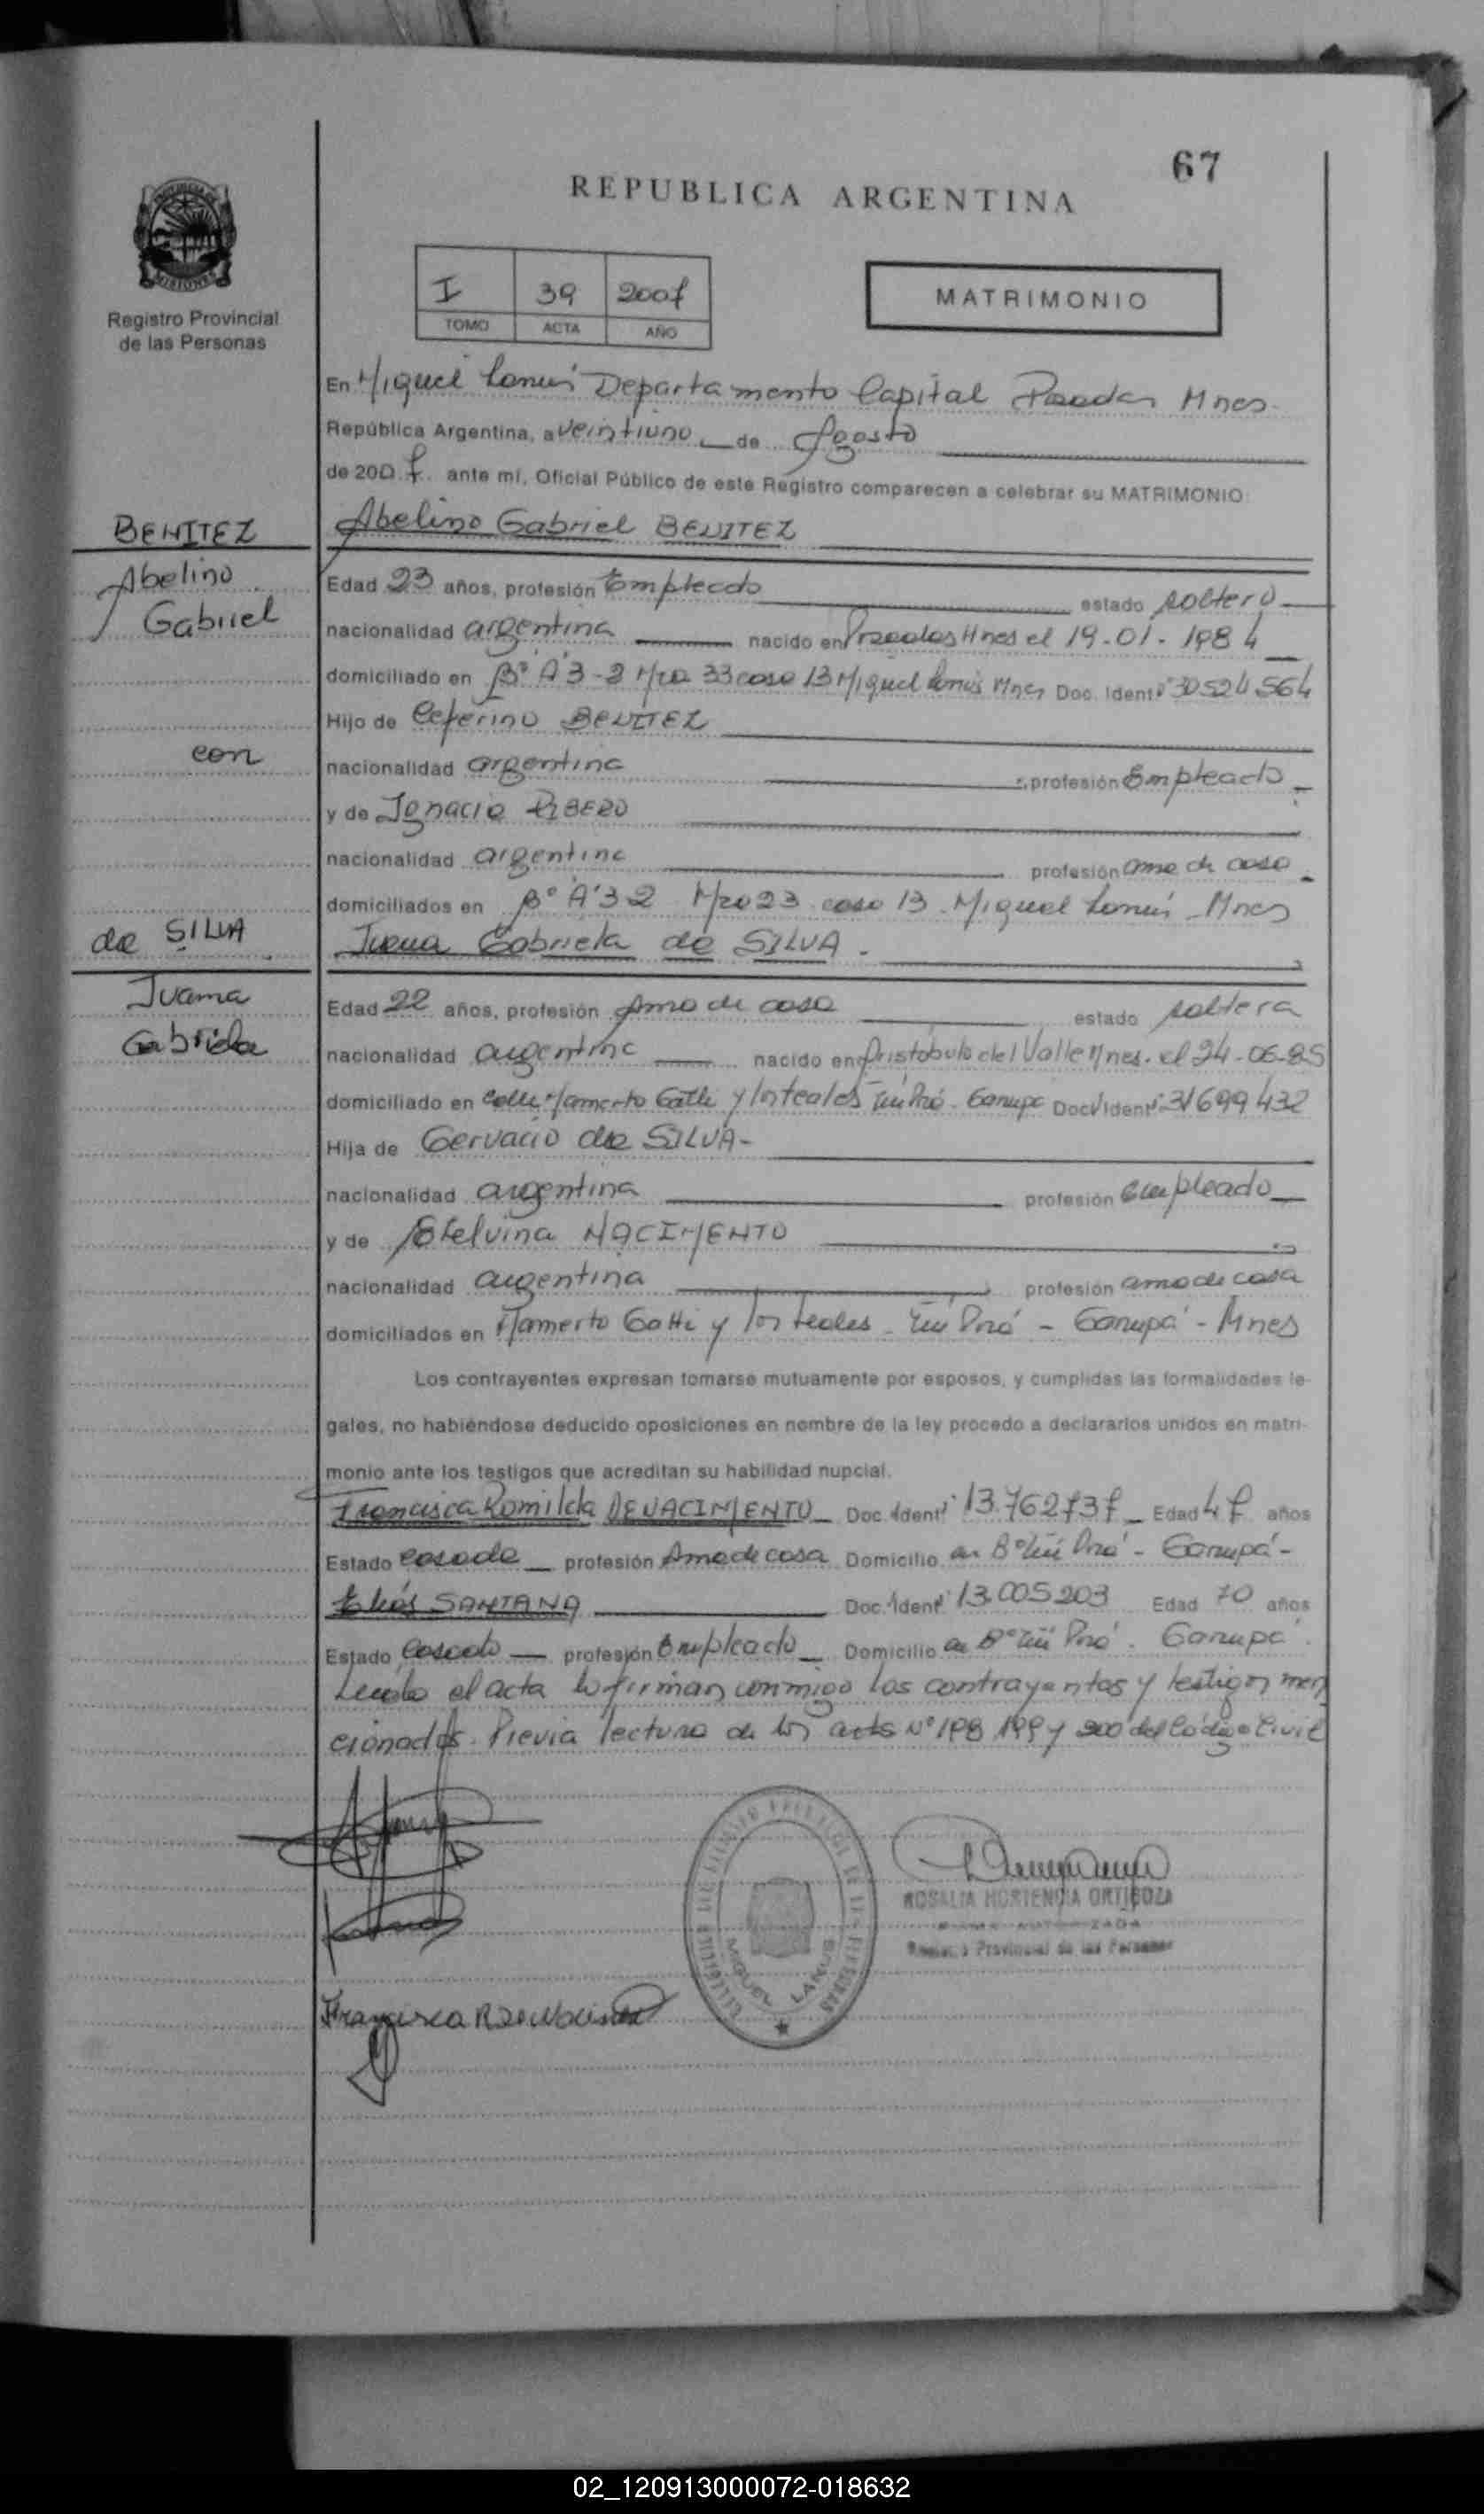 67
REPUBLICA ARGENTINA
MISIONES
Registro Provincial
de las Personas
I 39 2007
TOMO ACTA AÑO
MATRIMONIO
En Miguel Lanús Departamento Capital Posadas Mnes.
República Argentina, a veintiuno de Agosto
de 2007 ante mí, Oficial Público de este Registro comparecen a celebrar su MATRIMONIO:
BENITEZ
Abelino Gabriel BENITEZ
Abelino
Gabriel
Edad 23 años, profesión Empleado estado soltero
nacionalidad argentina nacido en Posadas Mnes el 19-01-1984
domiciliado en Bº A'3-2 Mza 33 casa 13 Miguel Lanús Mnes Doc. Ident. 30524564
Hijo de Ceferino BENITEZ
con
nacionalidad argentina profesión Empleado
y de Ignacia RIBERO
nacionalidad argentina profesión ama de casa
domiciliados en Bº A'32 Mza 23 casa 13 Miguel Lanús Mnes
de SILVA
Juana Gabriela de SILVA.
Juana
Gabriela
Edad 22 años, profesión Ama de casa estado soltera
nacionalidad argentina nacido en Aristóbulo del Valle Mnes. el 24-06-85
domiciliado en calle Mamerto Gatti y los teales Ñu Porá - Garupá Doc. Ident. 31699432
Hija de Gervacio de SILVA-
nacionalidad argentina profesión empleado
y de Etelvina NACIMENTO
nacionalidad argentina profesión ama de casa
domiciliados en Mamerto Gatti y los teales Ñu Porá - Garupá - Mnes
Los contrayentes expresan tomarse mutuamente por esposos, y cumplidas las formalidades le-
gales, no habiéndose deducido oposiciones en nombre de la ley procedo a declararlos unidos en matri-
monio ante los testigos que acreditan su habilidad nupcial.
Francisca Romilda DENACIMIENTO Doc. Ident. 13.762737 Edad 47 años
Estado casada profesión Ama de casa Domicilio en Bº Ñu Porá - Garupá -
Elías SANTANA Doc. Ident. 13.005203 Edad 70 años
Estado Casado profesión Empleado Domicilio en Bº Ñu Porá. Garupá.
Leida el acta la firman conmigo los contrayentes y testigos men
cionados. Previa lectura de los arts Nº 198 199 y 200 del Código Civil
MIGUEL LANUS
ROSALIA HORTENCIA ORTIGOZA
Registro Provincial de las Personas
Francisca R
02_120913000072-018632